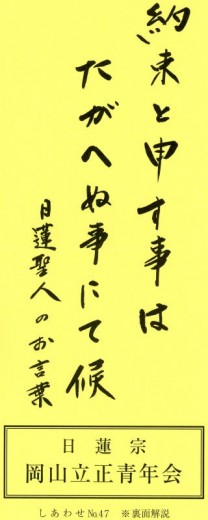 約束と申す事は
たがへぬ事にて候
日蓮聖人のお言葉
日蓮宗
岡山立正青年会
しあわせ№47 ※裏面解説